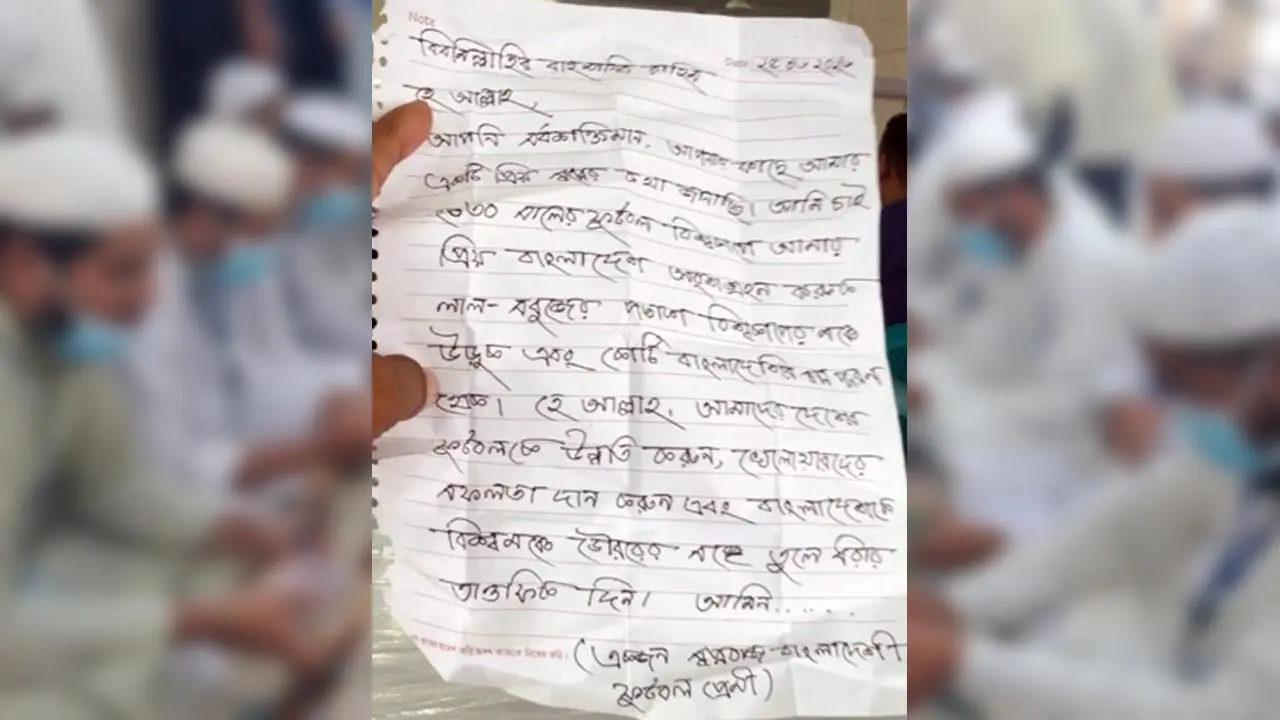 Note
বিসমিল্লাহির রাহমানির রাহিম
Date
হে আল্লাহ,
আপনি সর্বশক্তিমান, আপনার কাছে আমার
একটি প্রিয় স্বপ্নের কথা জানাচ্ছি। আমি চাই
২০৩০ সালের ফুটবল বিশ্বকাপে আমার
প্রিয় বাংলাদেশ অংশগ্রহন করুক
লাল-সবুজের পতাকা বিশ্বকাপের মঞ্চে
উড়ুক এবং কোটি বাংলাদেশির স্বপ্ন পূরণ
হোক। হে আল্লাহ, আমাদের দেশের
ফুটবলকে উন্নতি করুন, খেলোয়ারদের
সফলতা দান করুন এবং বাংলাদেশকে
বিশ্বমঞ্চে গৌরবের সঙ্গে তুলে ধরার
তাওফিক দিন। আমিন......
(একজন স্বপ্নবাজ বাংলাদেশী
ফুটবল প্রেমী)